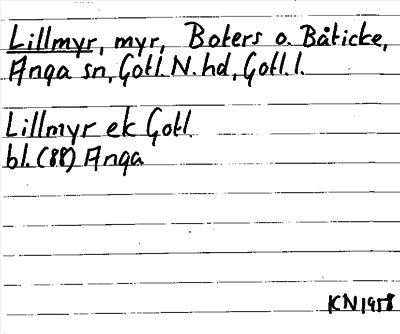 Lillmyr, myr, Boters o. Båticke,
Anga sn, Gotl. N. hd, Gotl. l.
Lillmyr ek Gotl.
bl. (88) Anga
KN 1958